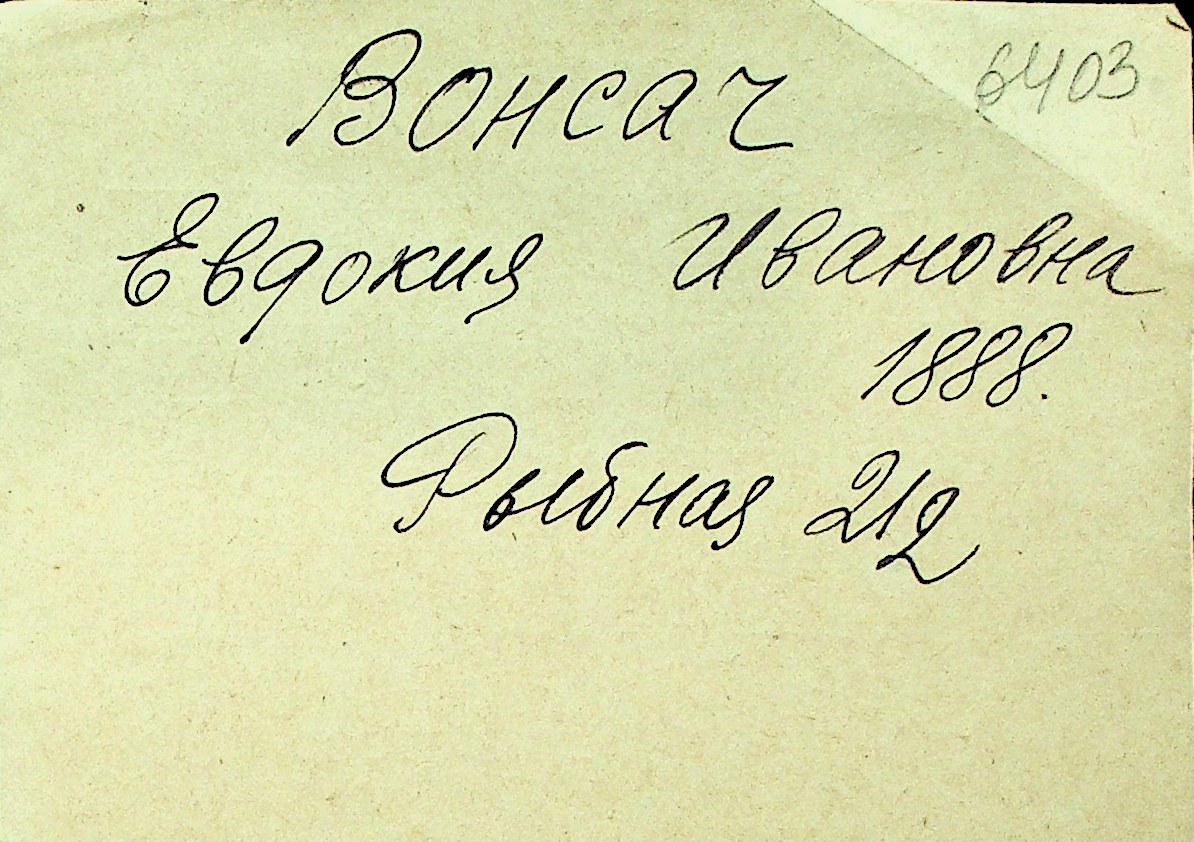 6403
Вонсач
Евдокия Ивановна
1888.
Рыбная 212